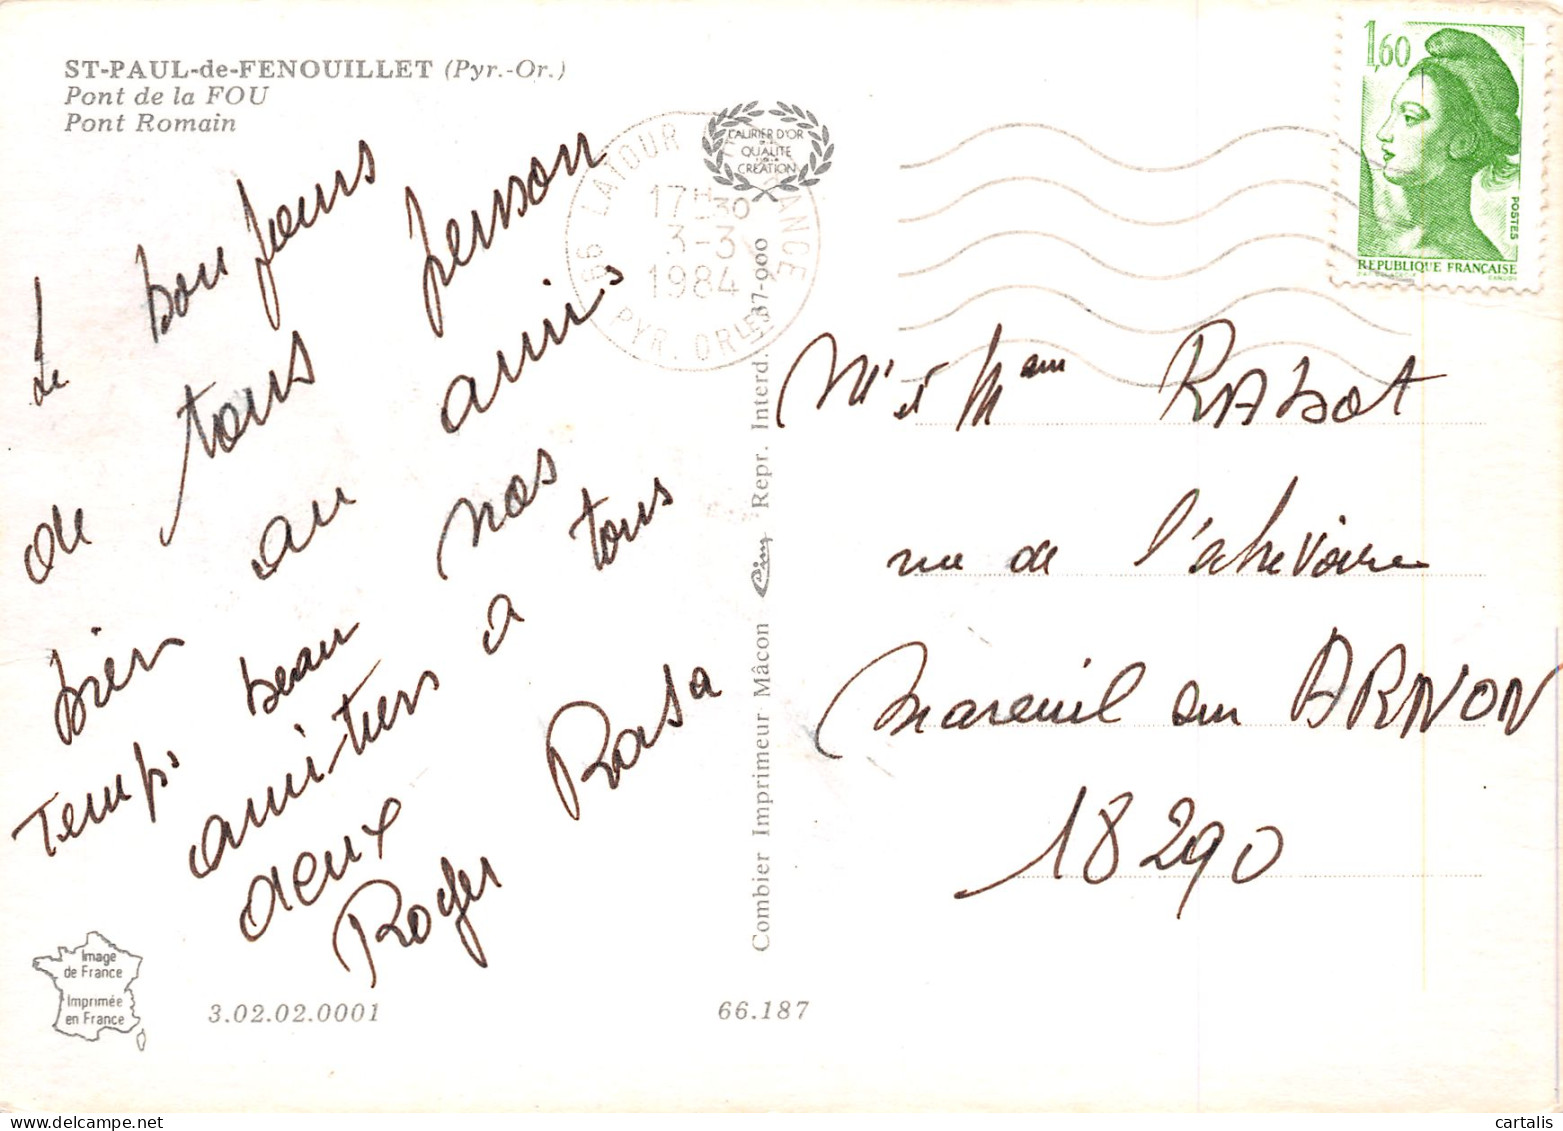 ST-PAUL-de-FENOUILLET (Pyr.-Or.)
Pont de la FOU
Pont Romain
Le bon jours
de tous persson
bien au amis
Temps beau nos
amitiers a tous
deux Rosa
Roger
Image
de France
Imprimée
en France
3.02.02.0001
66.187
Combier Imprimeur Mâcon Cim Repr. Interd. 37-900
LAURIER D'OR
QUALITE
CREATION
66 LATOUR DE FRANCE
17H30
3-3
1984
PYR. ORLES
1,60
POSTES
REPUBLIQUE FRANÇAISE
Mr et Mam RABOT
rue de l'abrevoire
Mareuil sur ARNON
18290
cartalis